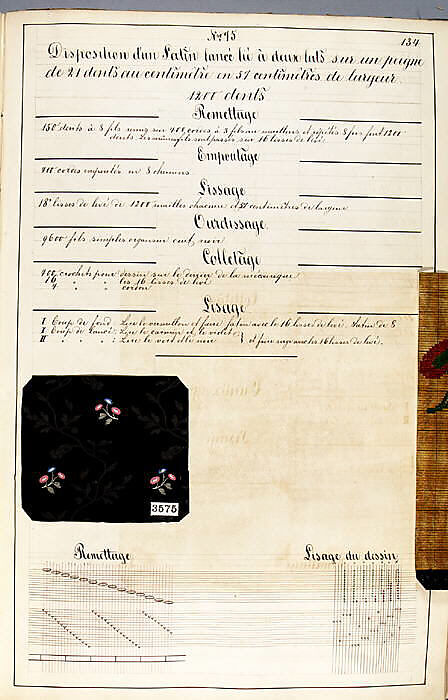 No. 75
134
Disposition d'un Satin lancé lié à deux lats sur un peigne
de 21 dents au centimètre en 57 centimètres de largeur
1200 dents
Remettage
150 dents à 8 fils sur 400 cordes à 3 fils et répétés 8 fois font 1200
dents. sur 16 lisses de lié
Empoutage
400 cordes empoutés en 8 chemins
Lissage
lisses de lié de 1200 mailles chacune et 57 centimètres de largeur
Ourdissage
9600 fils simples organsin cuit, noir
Colletage
400 crochets pour dessin sur le derrière de la mécanique
16 " " les 16 lisses de lié
4 " " cordon
Lisage
1 Coup de fond, Lire le vermillon et faire satin avec le 16 lisses de lié. Satin de 8
1 Coup de lancé, Lire le carmin et le violet
" " " : Lire le vert et le noir } et faire avec les 16 lisses de lié.
3575
Remettage
Lisage du dessin